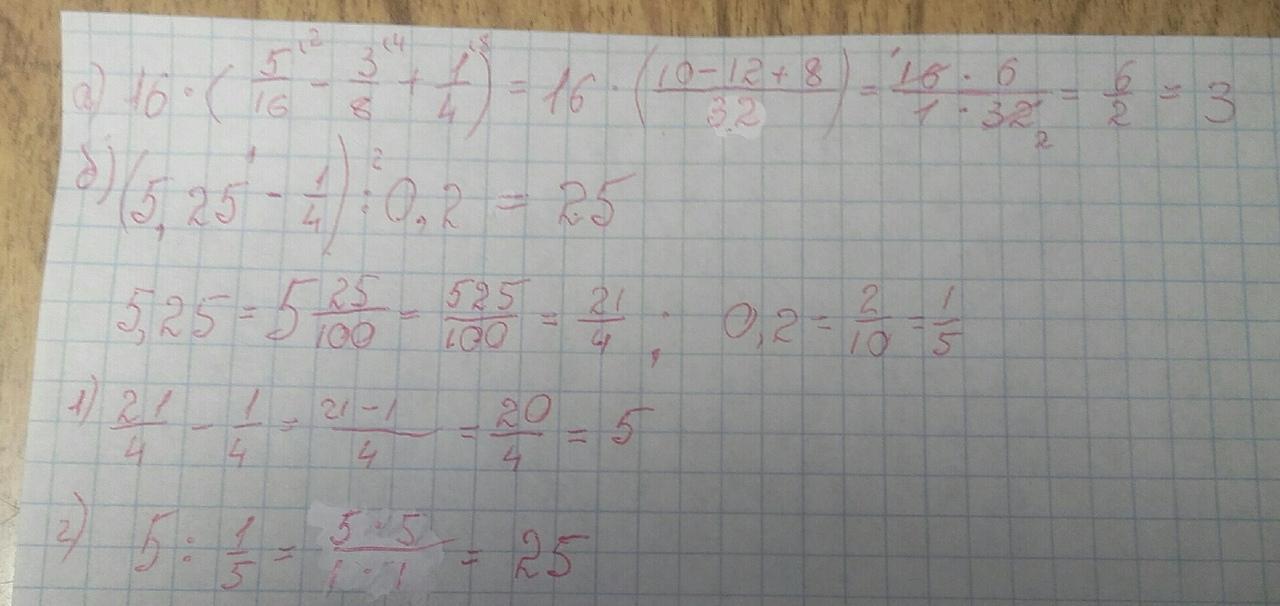 а) 16 · (5/16 (2 - 3/8 (4 + 1/4 (8) = 16 · (10-12+8/32) = 16 · 6/1 · 32 2 = 6/2 = 3
б) (5,25 - 1/4) : 0,2 = 25
5,25 = 5 25/100 = 525/100 = 21/4 ; 0,2 = 2/10 = 1/5
1) 21/4 - 1/4 = 21-1/4 = 20/4 = 5
2) 5 : 1/5 = 5·5/1·1 = 25